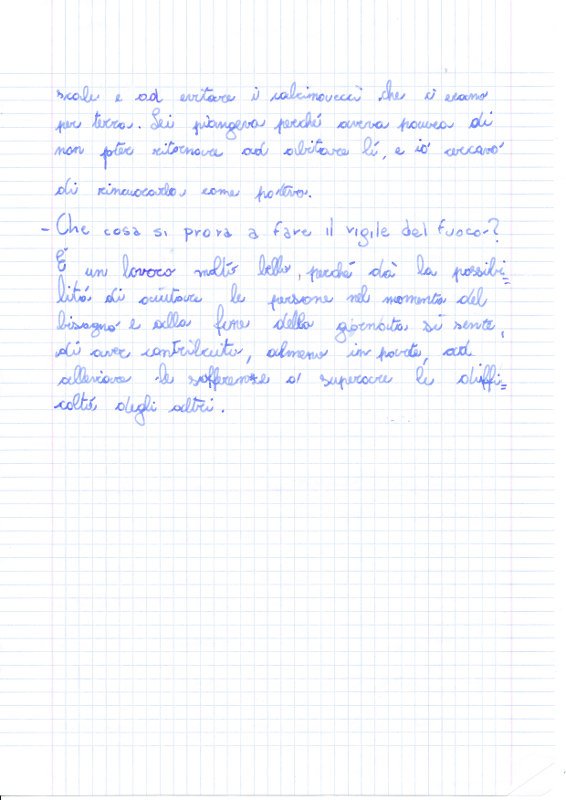 scale e ad evitare i calcinacci che ci erano
per terra. Lei piangeva perché aveva paura di
non poter ritornare ad abitare lì, e io cercavo
di rincuorarla come potevo.
- Che cosa si prova a fare il vigile del fuoco?
È un lavoro molto bello, perché dà la possibi=
lità di aiutare le persone nel momento del
bisogno e alla fine della giornata si sente,
di aver contribuito, almeno in parte, ad
alleviare le sofferenze o superare le diffi=
coltà degli altri.